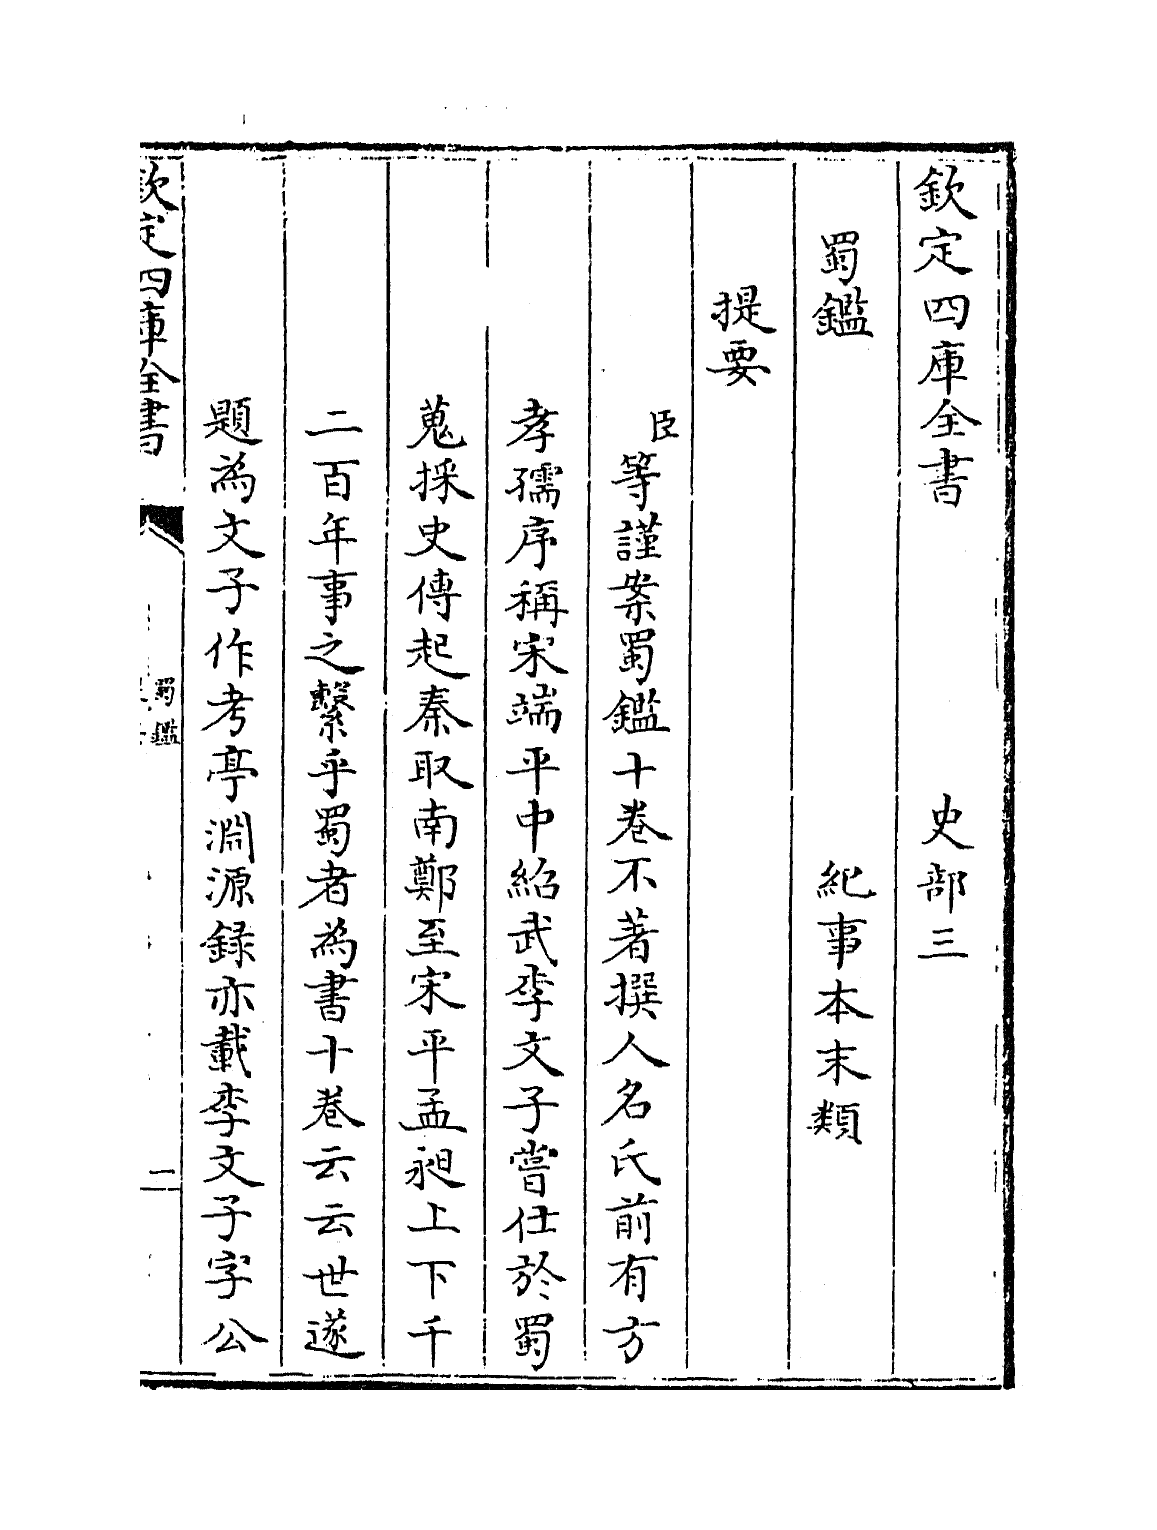 欽定四庫全書 史部三
蜀鑑 紀事本末類
提要
臣等謹案蜀鑑十卷不著撰人名氏前有方
孝孺序稱宋端平中紹武李文子嘗仕於蜀
蒐採史傳起秦取南鄭至宋平孟昶上下千
二百年事之繫乎蜀者為書十卷云云世遂
題為文子作考亭淵源録亦載李文子字公
欽定四庫全書
蜀鑑
一